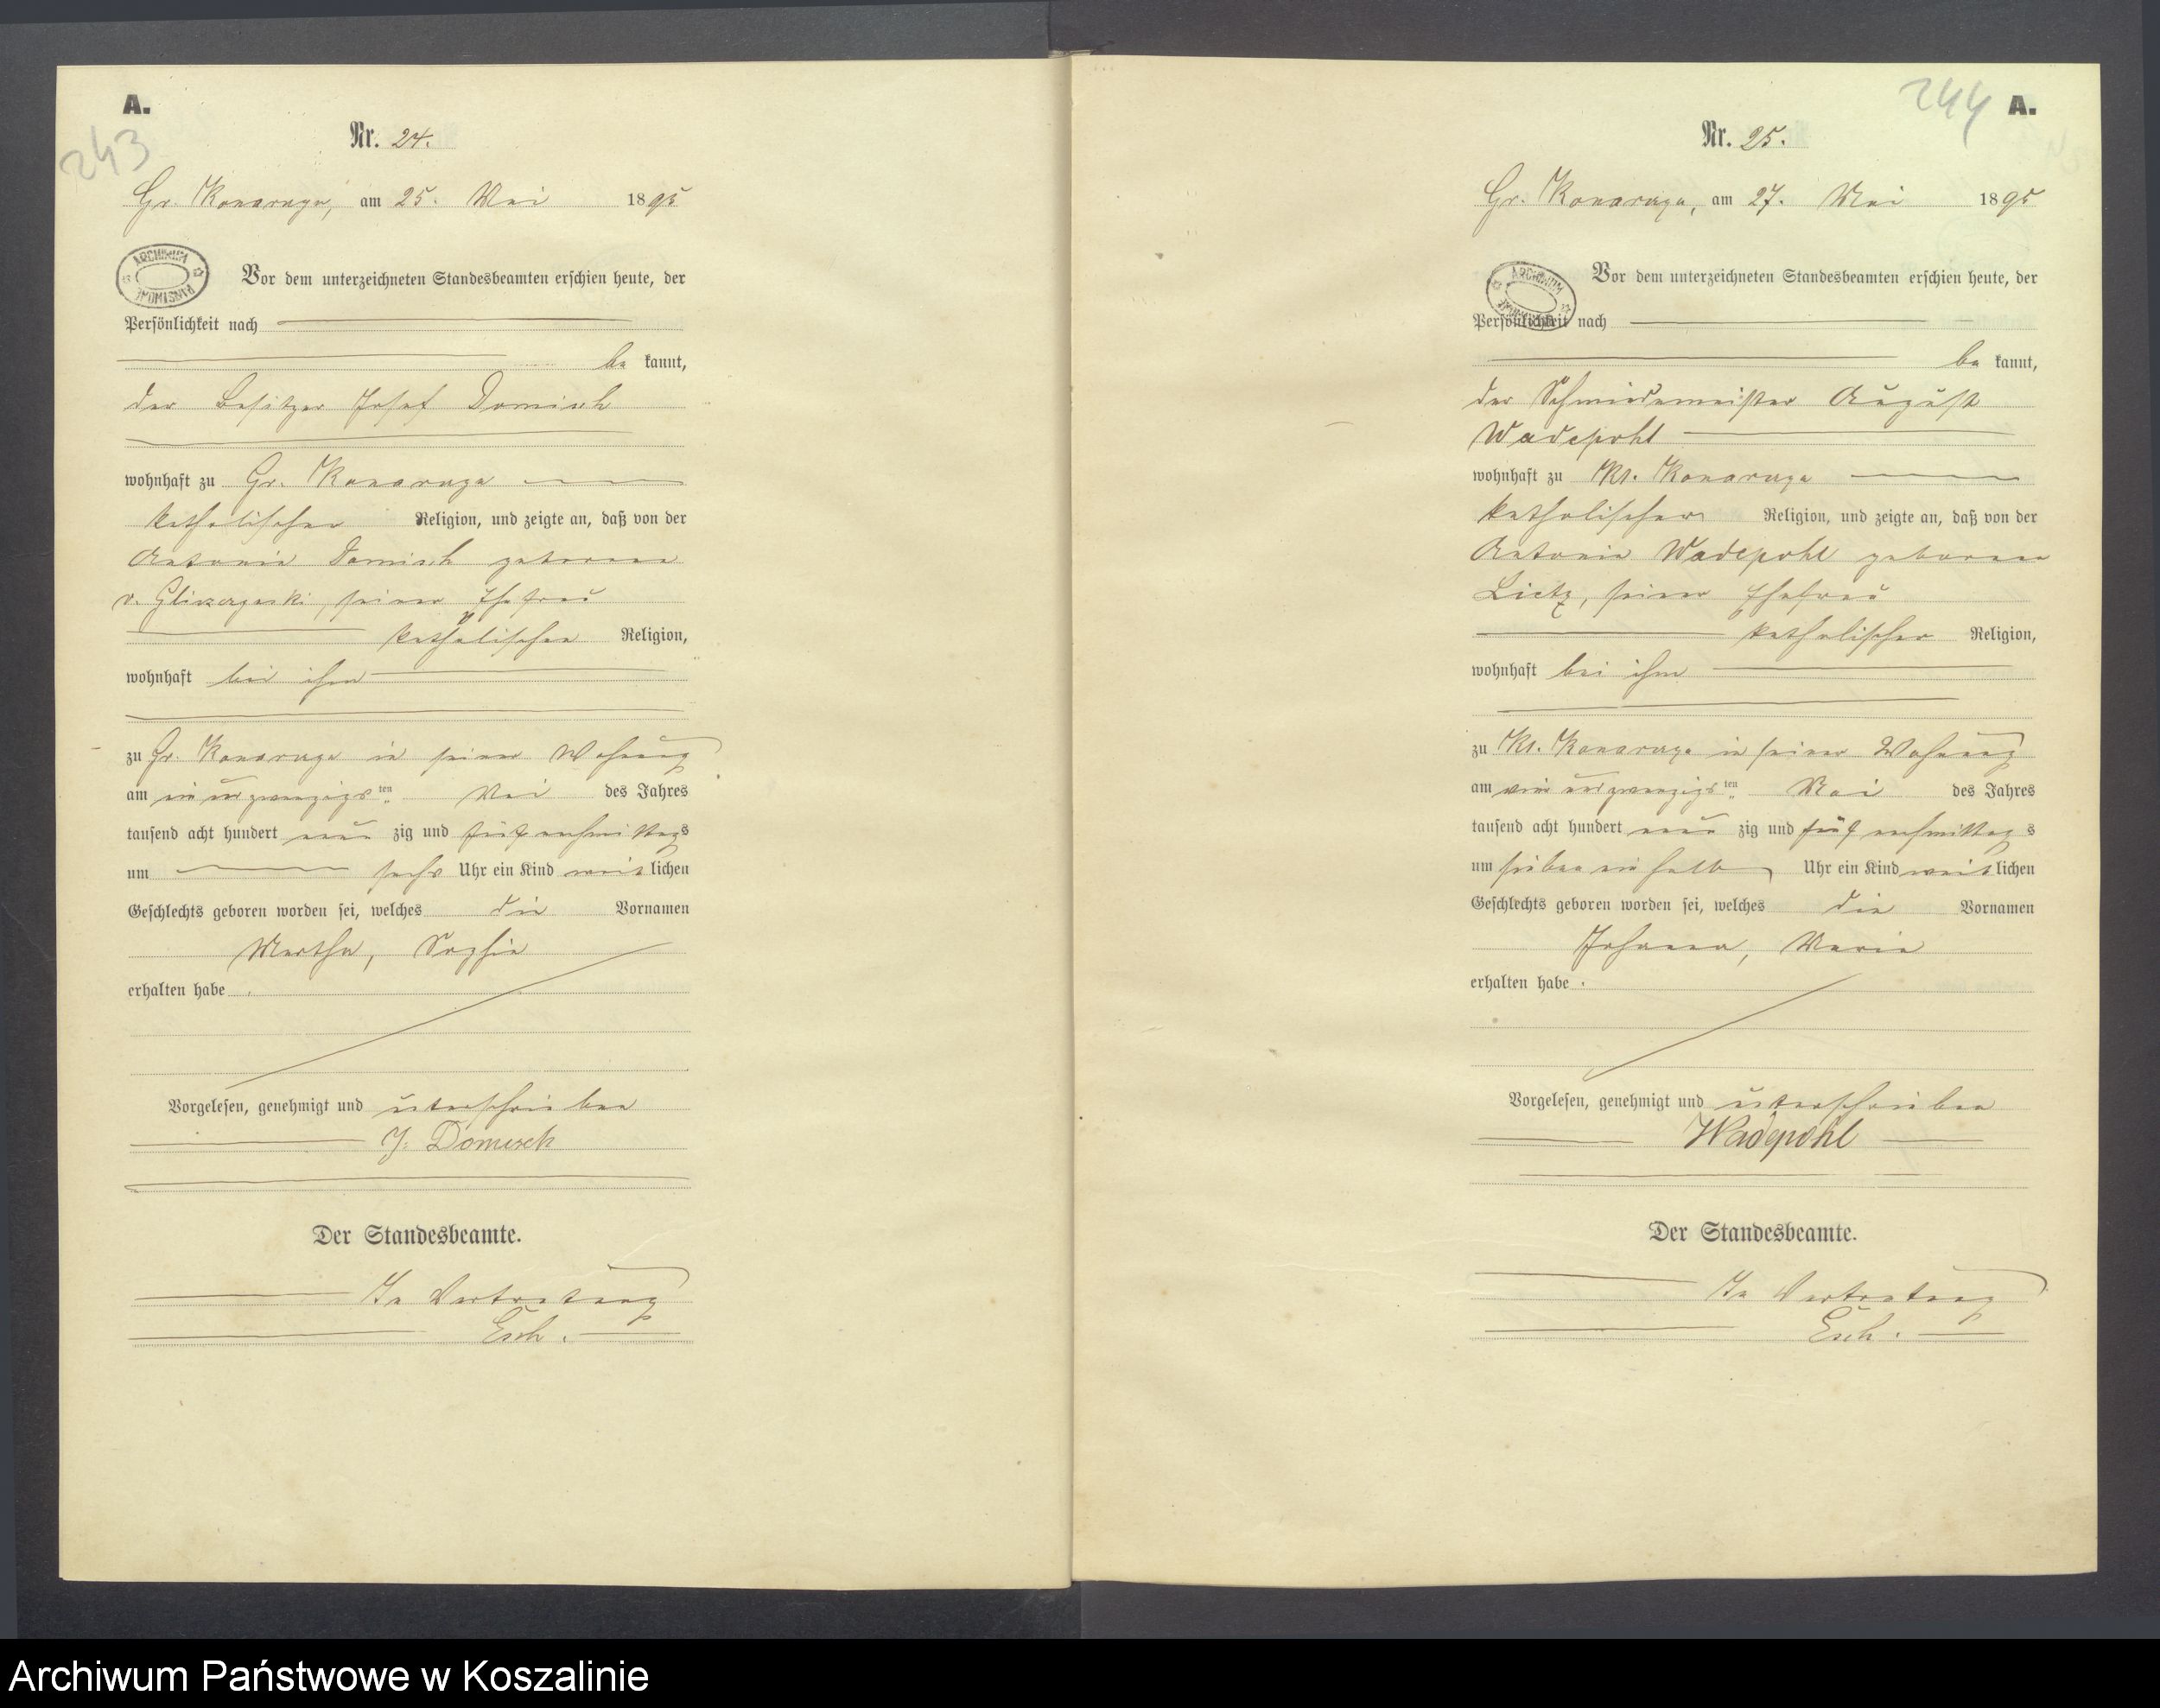 A.
243
Nr. 24.
Gr. Konarczyn, am 25. Mai 1895
ARCHIWUM PAŃSTWOWE
Vor dem unterzeichneten Standesbeamten erschien heute, der
Persönlichkeit nach
be kannt,
der Besitzer Josef
wohnhaft zu Gr.
katholischer Religion, und zeigte an, daß von der
Antonie geborene
v. seiner Ehefrau
katholischer Religion,
wohnhaft bei ihm
zu Gr. in seiner Wohnung
am ein und zwanzigsten Mai des Jahres
tausend acht hundert neun zig und fünf nachmittags
um sechs Uhr ein Kind weiblichen
Geschlechts geboren worden sei, welches die Vornamen
Martha, Sophie
erhalten habe.
Vorgelesen, genehmigt und unterschrieben
J.
Der Standesbeamte.
In Vertretung
Esch.
244 A.
Nr. 25.
Gr. am 27. Mai 1895
ARCHIWUM PAŃSTWOWE
Vor dem unterzeichneten Standesbeamten erschien heute, der
Persönlichkeit nach
be kannt,
der Schmiedemeister August
Wadepohl
wohnhaft zu Kl.
katholischer Religion, und zeigte an, daß von der
Antonie Wadepohl geborene
Lietz, seiner Ehefrau
katholischer Religion,
wohnhaft bei ihm
zu Kl. in seiner Wohnung
am und zwanzigsten Mai des Jahres
tausend acht hundert neun zig und fünf nachmittags
um sieben ein halb Uhr ein Kind weiblichen
Geschlechts geboren worden sei, welches die Vornamen
Johanna, Maria
erhalten habe.
Vorgelesen, genehmigt und unterschrieben
Wadepohl
Der Standesbeamte.
In Vertretung
Esch.
Archiwum Państwowe w Koszalinie